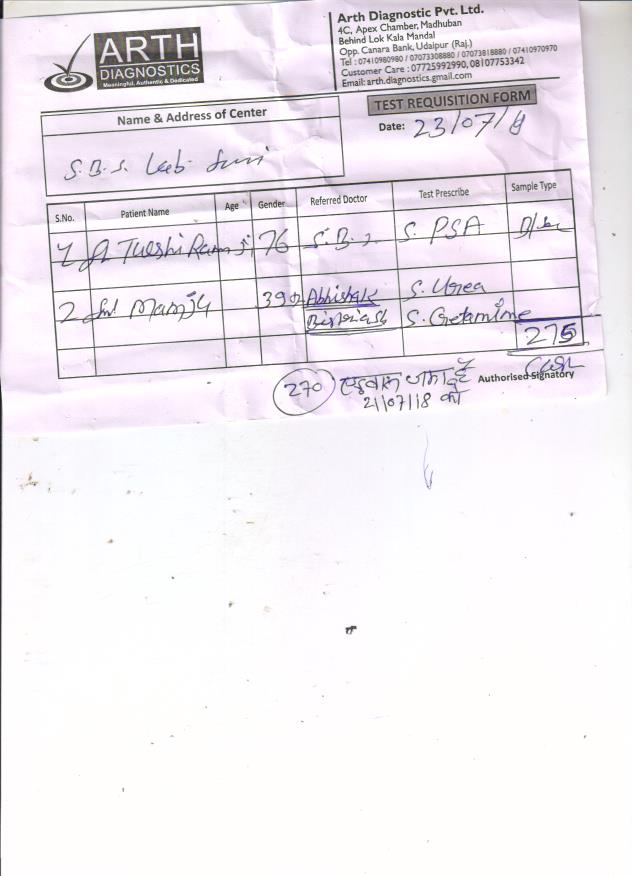 ARTH
DIAGNOSTICS
Meaningful, Authentic & Dedicated
Arth Diagnostic Pvt. Ltd.
4C, Apex Chamber, Madhuban
Behind Lok Kala Mandal
Opp. Canara Bank, Udaipur (Raj.)
Tel : 07410980980 / 07073308880 / 07073818880 / 07410970970
Customer Care : 07725992990, 08107753342
Email: arth.diagnostics.gmail.com
TEST REQUISITION FORM
Name & Address of Center
Date: 23/07/
S.B.S. Lab
S.No. Patient Name Age Gender Referred Doctor Test Prescribe Sample Type
1 Tulshi Ramji 76 S.B.S. S. PSA
2 Manju 39 Abhishek S. Urea
S. Cretamine
275
Cash
Authorised Signatory
270
21/07/18 का